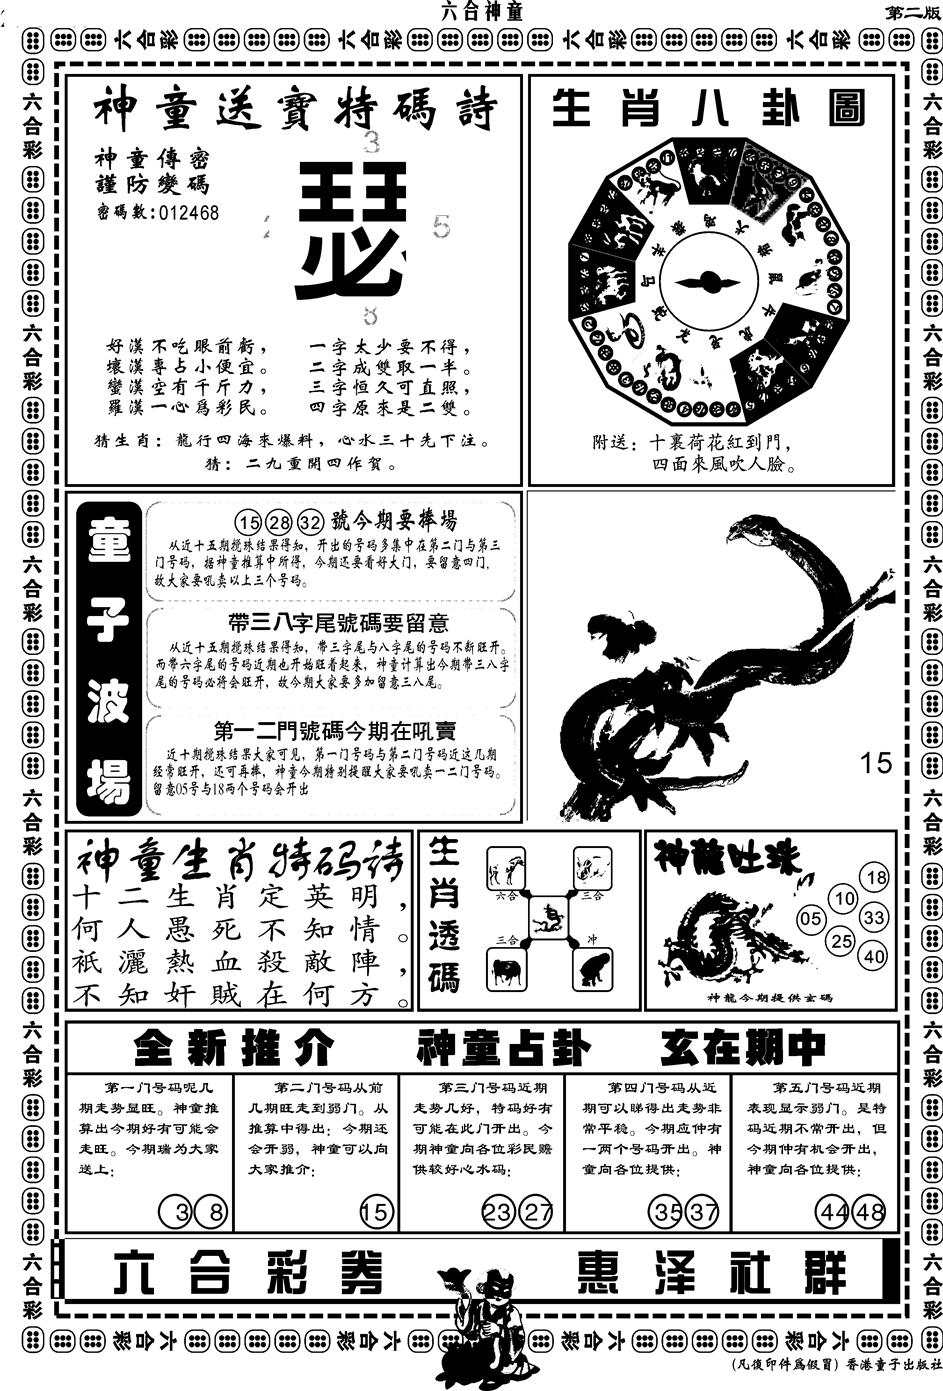 六合神童
第二版
六合彩 六合彩 六合彩 六合彩
神童送寶特碼詩
神童傳密
謹防變碼
密碼數:012468
3
瑟
5
8
好漢不吃眼前虧，
壞漢專占小便宜。
蠻漢空有千斤力，
羅漢一心爲彩民。
一字太少要不得，
二字成雙取一半。
三字恒久可直照，
四字原來是二雙。
猜生肖：龍行四海來爆料，心水三十先下注。
猜：二九重開四作賀。
生肖八卦圖
附送：十裏荷花紅到門，
四面來風吹人臉。
童子波場
15 28 32 號今期要捧場
从近十五期搅珠结果得知，开出的号码多集中在第二门与第三
门号码，据神童推算中所得，今期还要看好大门，要留意四门，
故大家要吼卖以上三个号码。
帶三八字尾號碼要留意
从近十五期搅珠结果得知，带三字尾与八字尾的号码不断旺开。
而带六字尾的号码近期也开始旺着起来，神童计算出今期带三八字
尾的号码必将会旺开，故今期大家要多加留意三八尾。
第一二門號碼今期在吼賣
近十期搅珠结果大家可见，第一门号码与第二门号码近这几期
经常旺开，还可再捧，神童今期特别提醒大家要吼卖一二门号码。
留意05号与18两个号码会开出
15
神童生肖特码诗
十二生肖定英明，
何人愚死不知情。
衹灑熱血殺敵陣，
不知奸賊在何方。
生肖透碼
六合
三合
三合
冲
神龍吐珠
18
10
05
33
25
40
神龍今期提供玄碼
全新推介 神童占卦 玄在期中
第一门号码呢几
期走势显旺。神童推
算出今期好有可能会
走旺。今期瑞为大家
送上：
3 8
第二门号码从前
几期旺走到弱门。从
推算中得出：今期还
会开弱，神童可以向
大家推介：
15
第三门号码近期
走势几好，特码好有
可能在此门开出。今
期神童向各位彩民赐
供较好心水码：
23 27
第四门号码从近
期可以睇得出走势非
常平稳。今期应仲有
一两个号码开出。神
童向各位提供：
35 37
第五门号码近期
表现显示弱门。是特
码近期不常开出，但
今期仲有机会开出，
神童向各位提供：
44 48
六合彩券 惠泽社群
六合彩 六合彩 六合彩 六合彩
(凡復印件爲假冒) 香港童子出版社